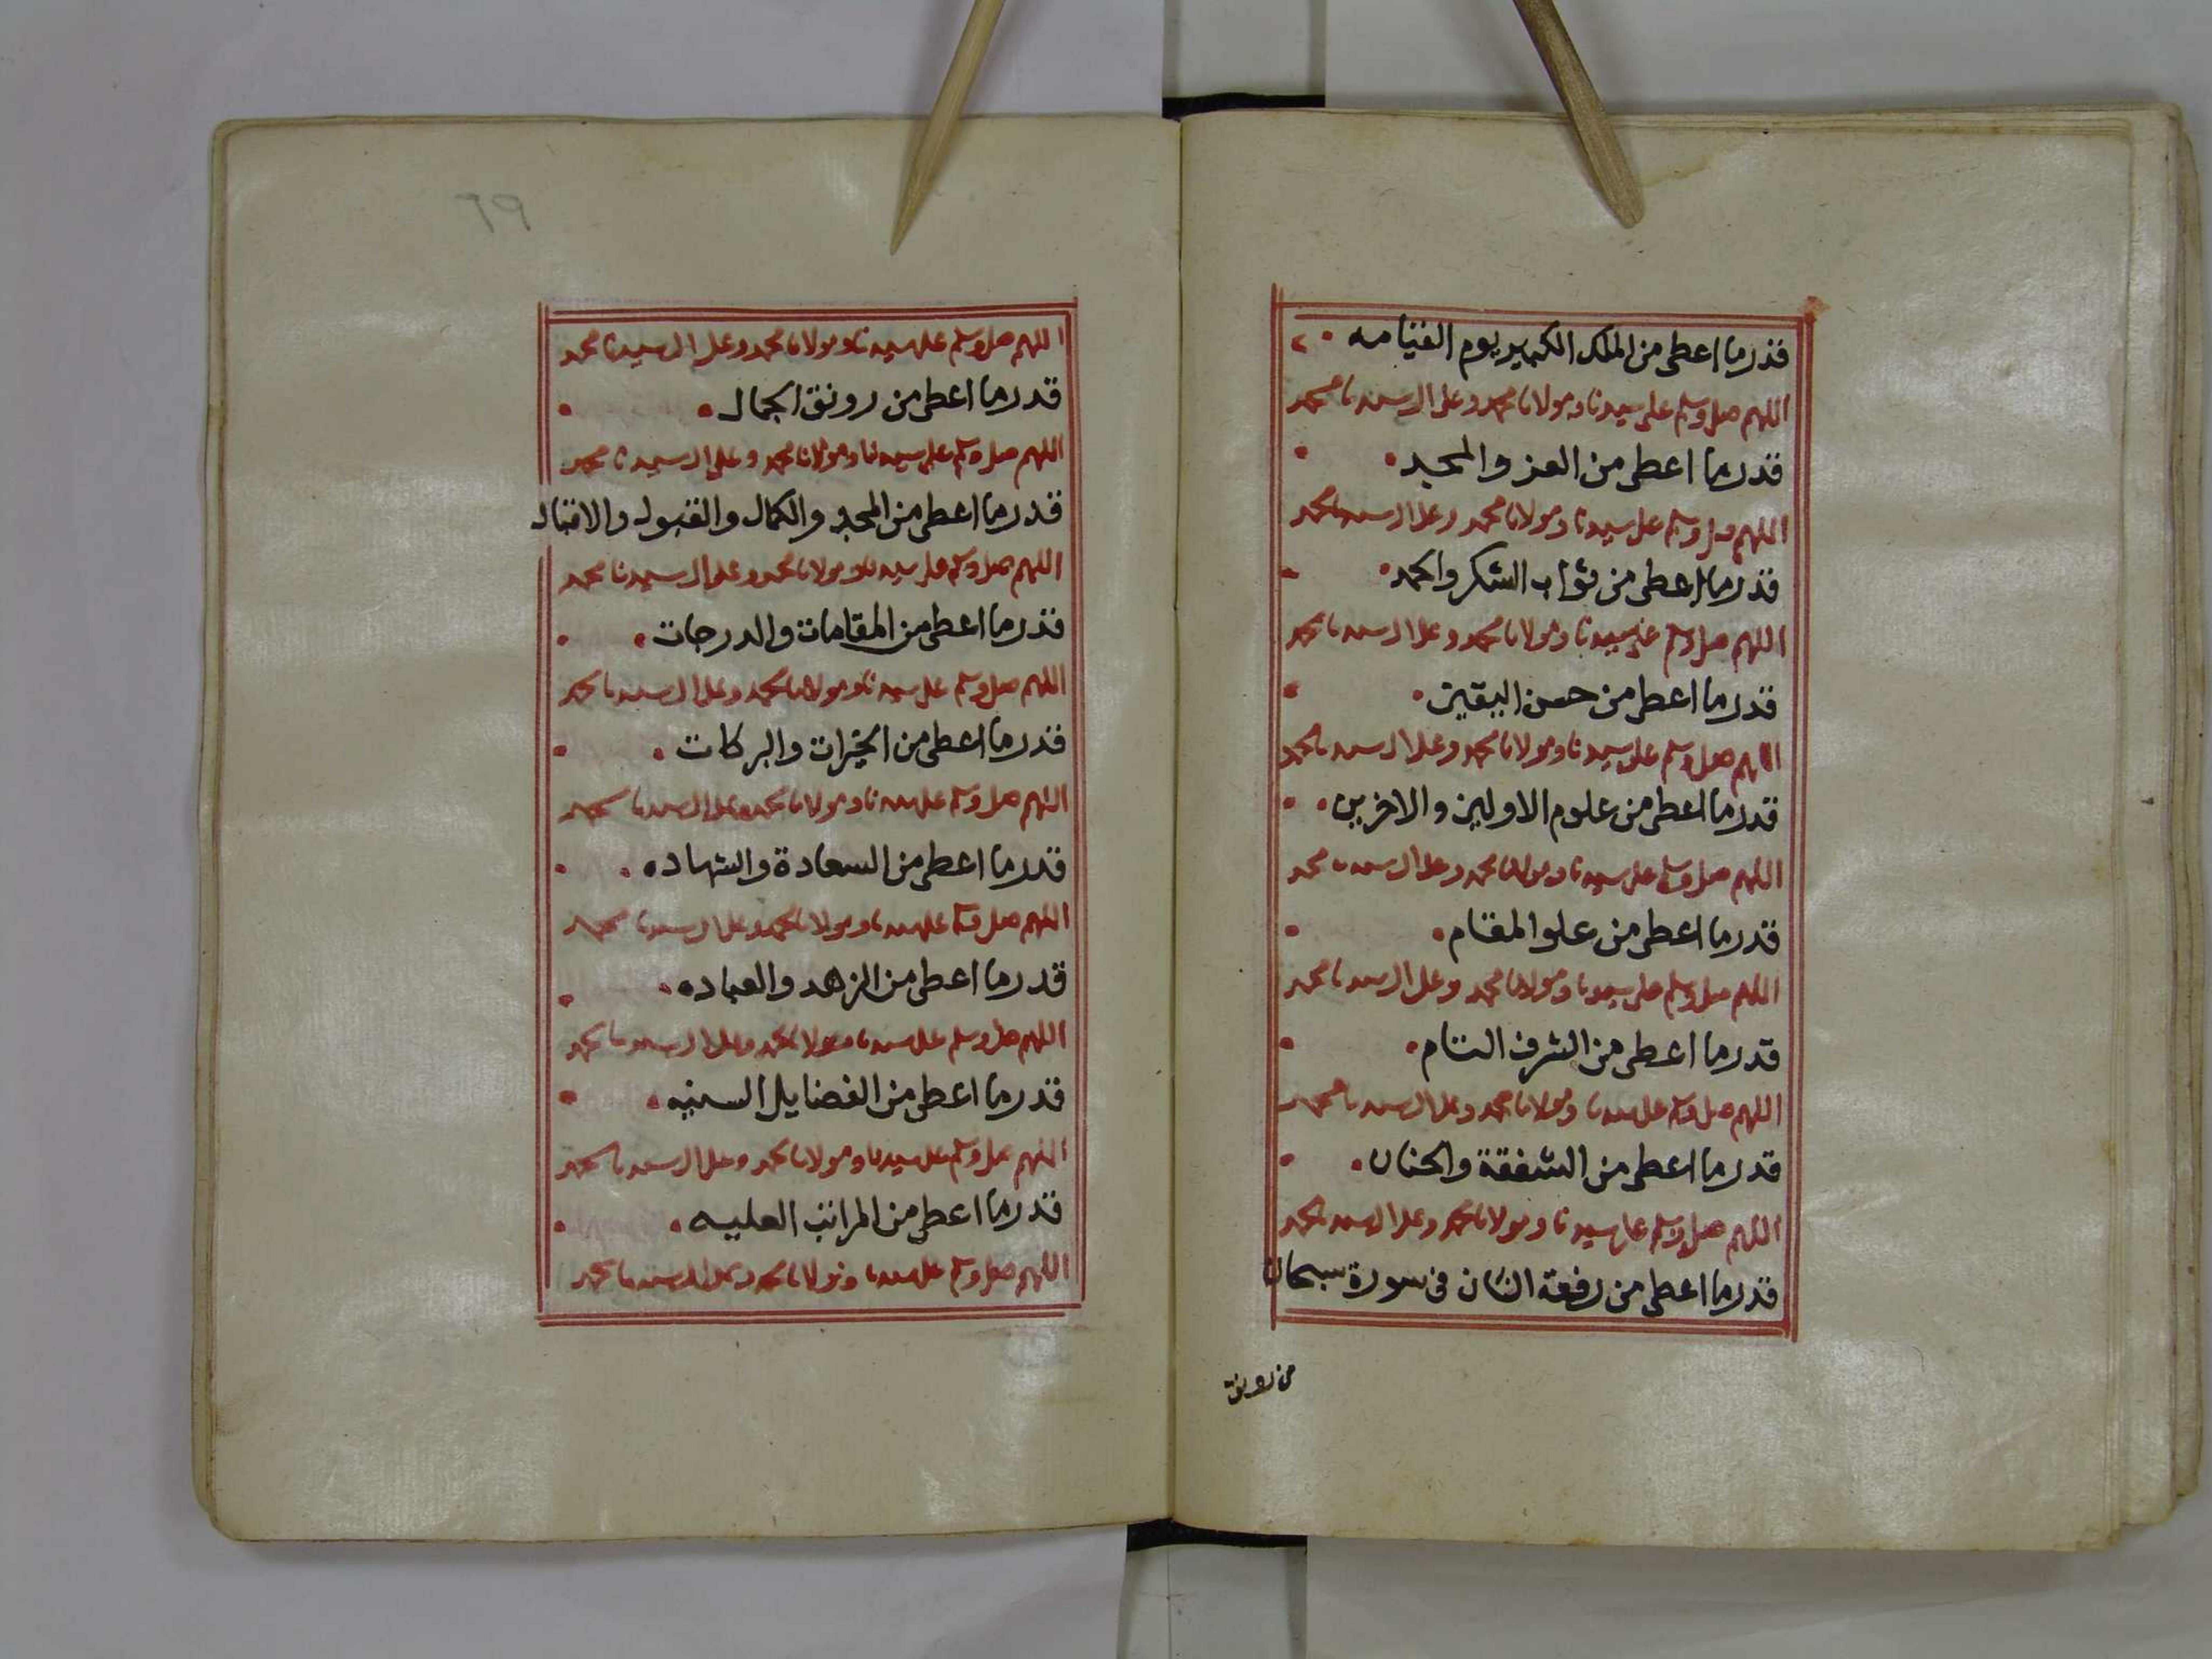 قدرما اعطى من الملك الكبير يوم القيامه
اللهم صل وسلم على سيدنا ومولانا محمد وعلى ال سيدنا محمد
قدرما اعطى من العز والمجد
اللهم صل وسلم على سيدنا ومولانا محمد وعلى ال سيدنا محمد
قدرما اعطى من ثواب الشكر والحمد
اللهم صل وسلم على سيدنا ومولانا محمد وعلى ال سيدنا محمد
قدرما اعطى من حسن اليقين
اللهم صل وسلم على سيدنا ومولانا محمد وعلى ال سيدنا محمد
قدرما اعطى من علوم الاولين والاخرين
اللهم صل وسلم على سيدنا ومولانا محمد وعلى ال سيدنا محمد
قدرما اعطى من علو المقام
اللهم صل وسلم على سيدنا ومولانا محمد وعلى ال سيدنا محمد
قدرما اعطى من الشرف التام
اللهم صل وسلم على سيدنا ومولانا محمد وعلى ال سيدنا محمد
قدرما اعطى من الشفقة والحنان
اللهم صل وسلم على سيدنا ومولانا محمد وعلى ال سيدنا محمد
قدرما اعطى من رفعة الشان فى سورة سبحان
من رونق
٦٩
اللهم صل وسلم على سيدنا ومولانا محمد وعلى ال سيدنا محمد
قدرما اعطى من رونق الجمال
اللهم صل وسلم على سيدنا ومولانا محمد وعلى ال سيدنا محمد
قدرما اعطى من المجد والكمال والقبول والاقبال
اللهم صل وسلم على سيدنا ومولانا محمد وعلى ال سيدنا محمد
قدرما اعطى من المقامات والدرجات
اللهم صل وسلم على سيدنا ومولانا محمد وعلى ال سيدنا محمد
قدرما اعطى من الخيرات والبركات
اللهم صل وسلم على سيدنا ومولانا محمد وعلى ال سيدنا محمد
قدرما اعطى من السعادة والشهاده
اللهم صل وسلم على سيدنا ومولانا محمد وعلى ال سيدنا محمد
قدرما اعطى من الزهد والعباده
اللهم صل وسلم على سيدنا ومولانا محمد وعلى ال سيدنا محمد
قدرما اعطى من الفضايل السنيه
اللهم صل وسلم على سيدنا ومولانا محمد وعلى ال سيدنا محمد
قدرما اعطى من المراتب العليه
اللهم صل وسلم على سيدنا ومولانا محمد وعلى ال سيدنا محمد